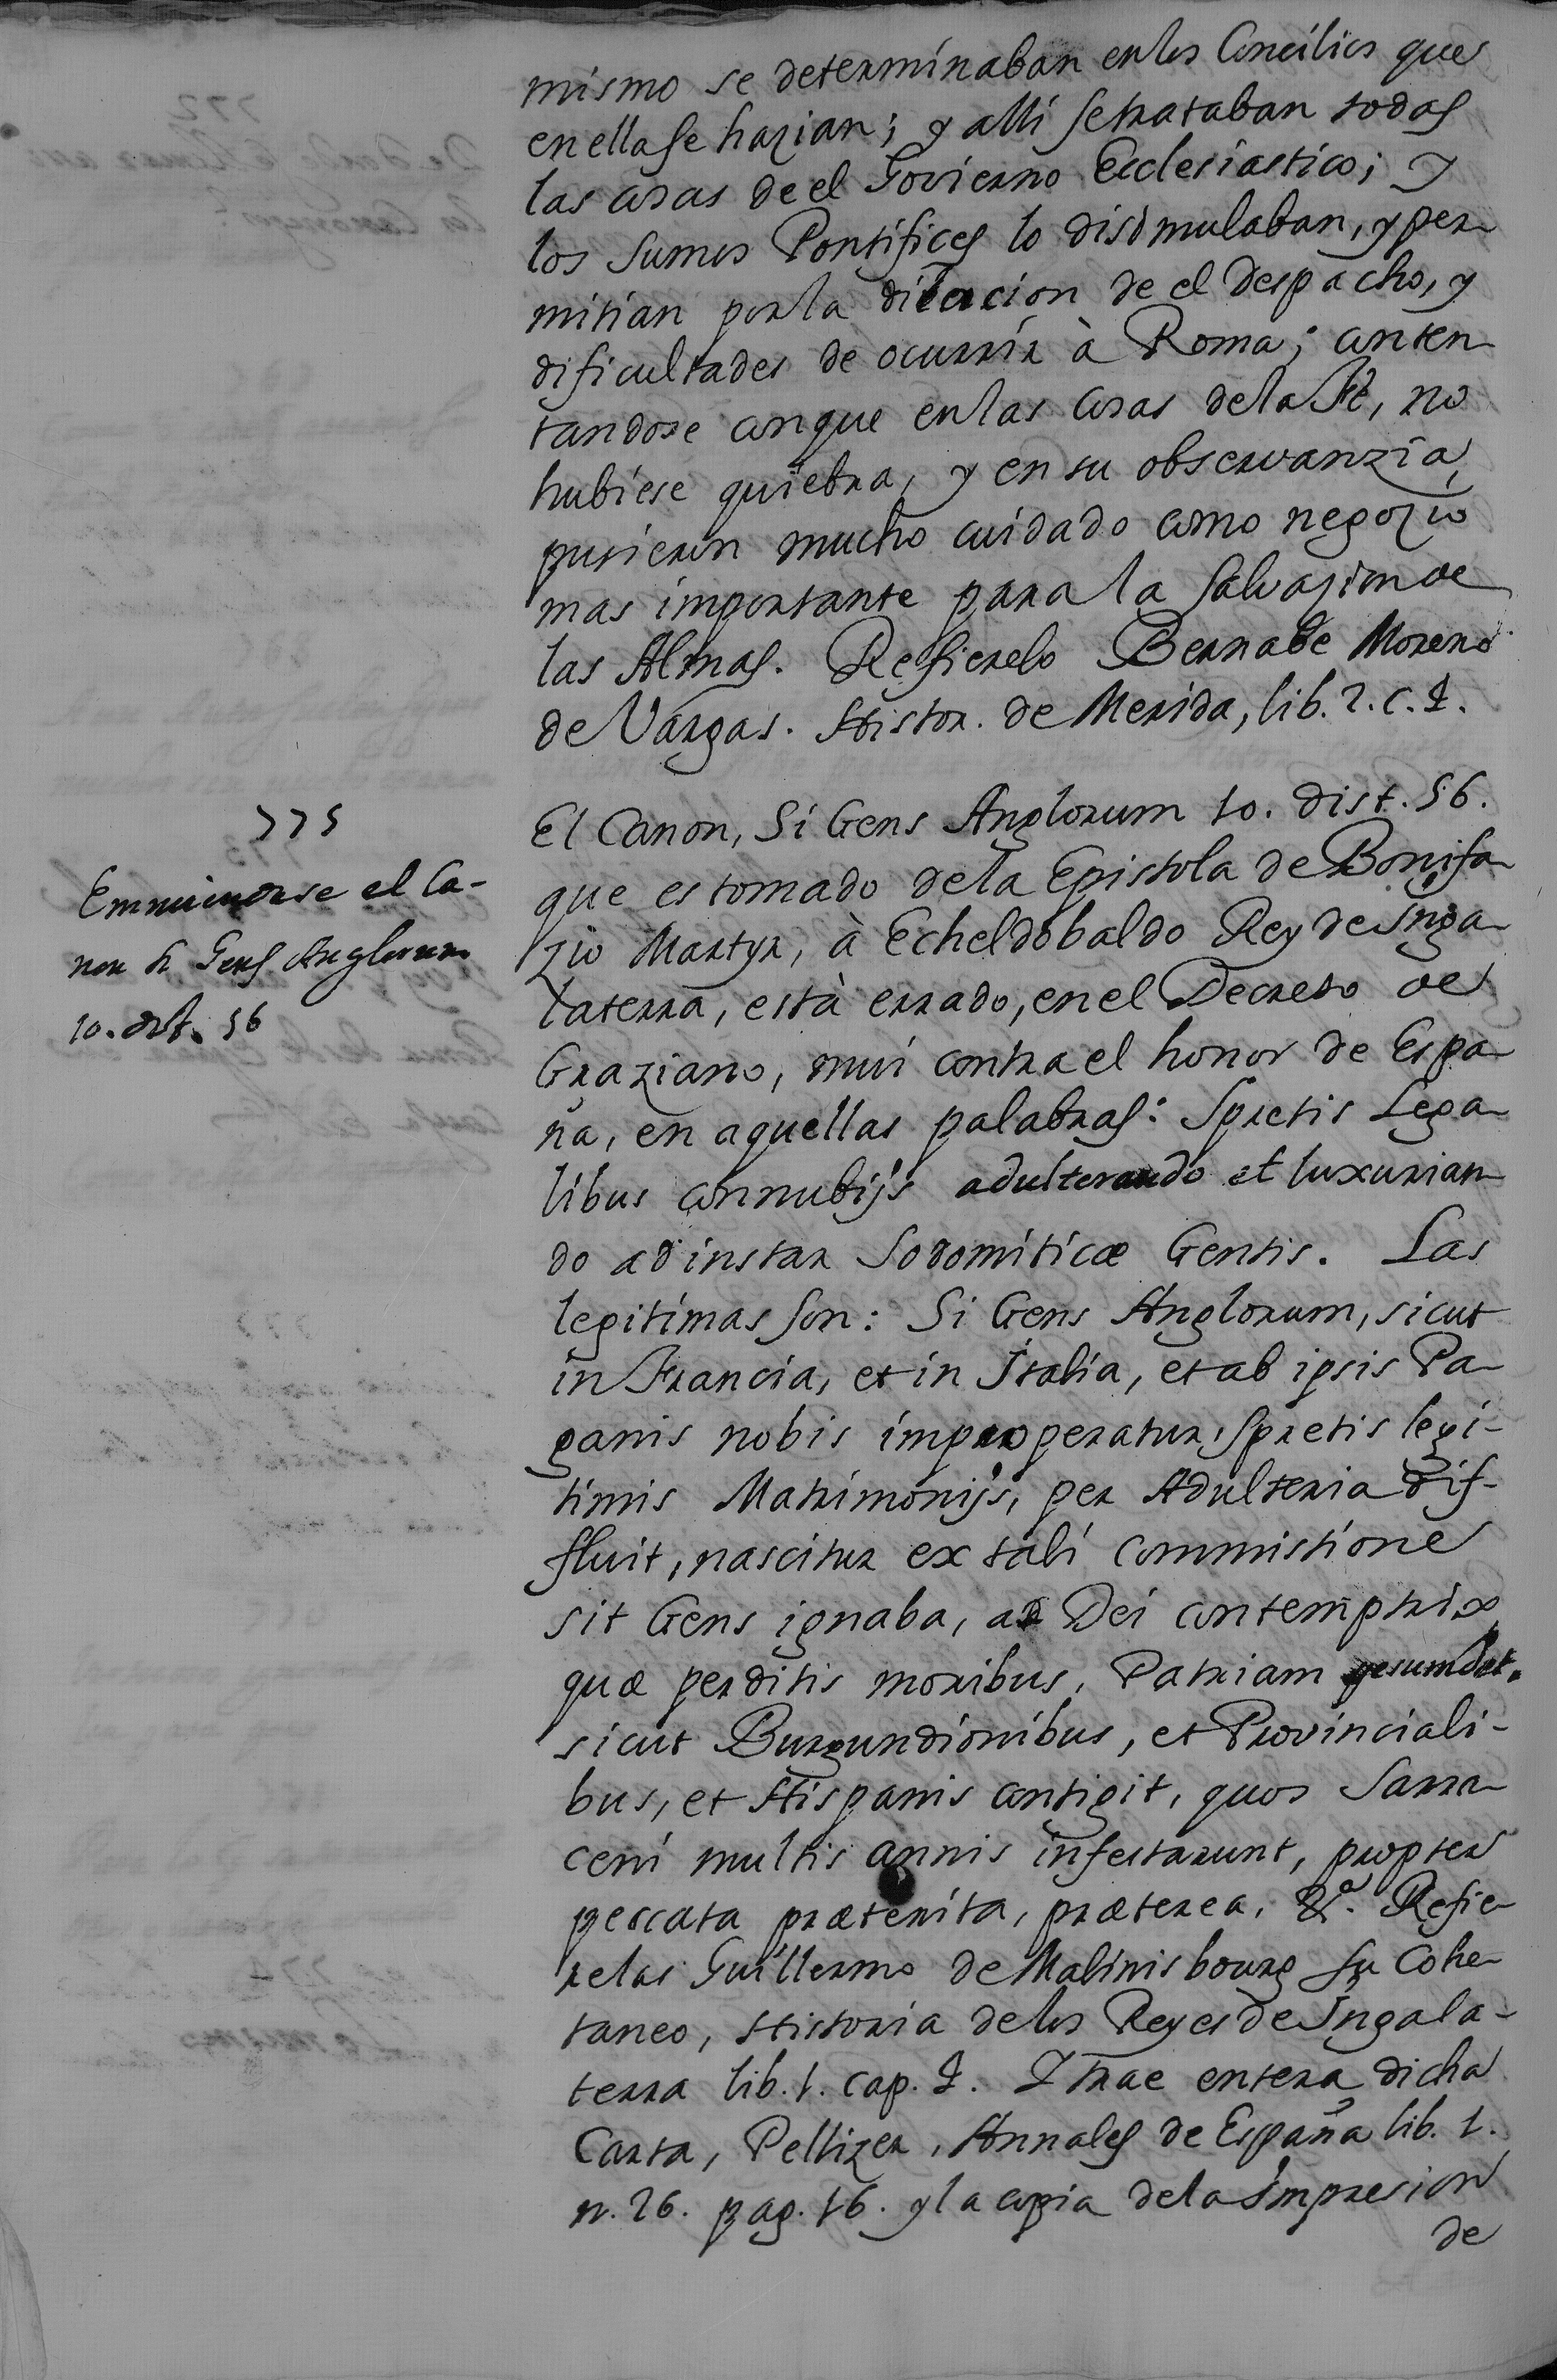 mismo se determinaban en los Concilios que
en ella se hazian; y alli se trataban todas
las cosas de el Govierno Ecclesiastico; Y
los Sumos Pontifices lo disimulaban, y per-
mitian por la dilacion de el Despacho, y
dificultades de ocurrir à Roma; conten-
tandose con que en las cosas de la Fè, no
hubiese quiebra, y en su observanzia
pusieron mucho cuidado como negozio
mas importante para la Salvazion de
las Almas. Refierelo Bernabe Moreno
de Vargas. Histor. de Merida, lib. 2. c. 1.
775
Emmiendase el Ca-
non si Gens Anglorum
10. dist. 56
El Canon, Si Gens Anglorum 10. dist. 56.
que es tomado de la Epistola de Bonifa-
zio Martyr, à Echeldobaldo Rey de Inga-
laterra, està errado, en el Decreto de
Graziano, mui contra el honor de Espa-
ña, en aquellas palabras: Spretis Lega-
libus connubijs adulterando et luxurian-
do ad instar Sodomiticæ Gentis. Las
legitimas son: Si Gens Anglorum, sicut
in Francia, et in Italia, et ab ipsis Pa-
ganis nobis improperatur, Spretis legi-
timis Matrimonijs, per Adulteria dif-
fluit, nascitur ex tali commistione
sit Gens ignaba, ac Dei contemptrix
quæ perditis moribus, Patriam pesumdet.
sicut Burgundionibus, et Provinciali-
bus, et Hispanis contigit, quos Sarra-
ceni multis annis infestarunt, propter
peccata præterita, præterea, &a. Refie-
relas Guillermo de Malinisbourg su Cohe-
taneo, Historia de los Reyes de Ingala-
terra lib. 1. cap. 1. Y trae entera dicha
Carta, Pellizer, Annales de España lib. 1.
n. 26. pag. 16. y la copia de la Impresion
de